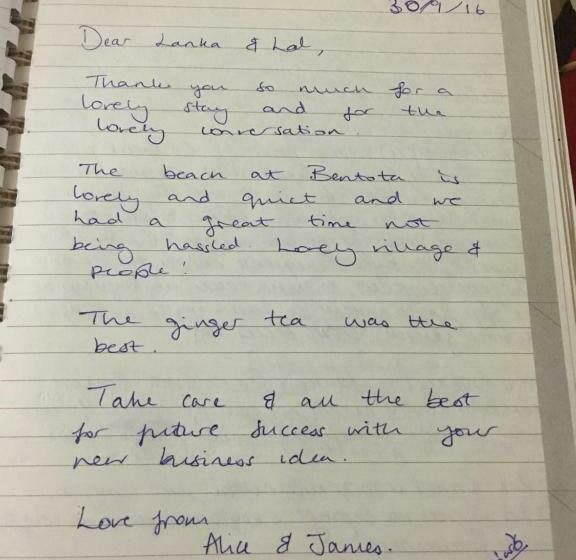 30/9/16
Dear Lanka & Lal,
Thank you so much for a
lovely stay and for the
lovely conversation.
The beach at Bentota is
lovely and quiet and we
had a great time not
being hassled. Lovely village &
people!
The ginger tea was the
best.
Take care & all the best
for future success with your
new business idea.
Love from
Alice & James.